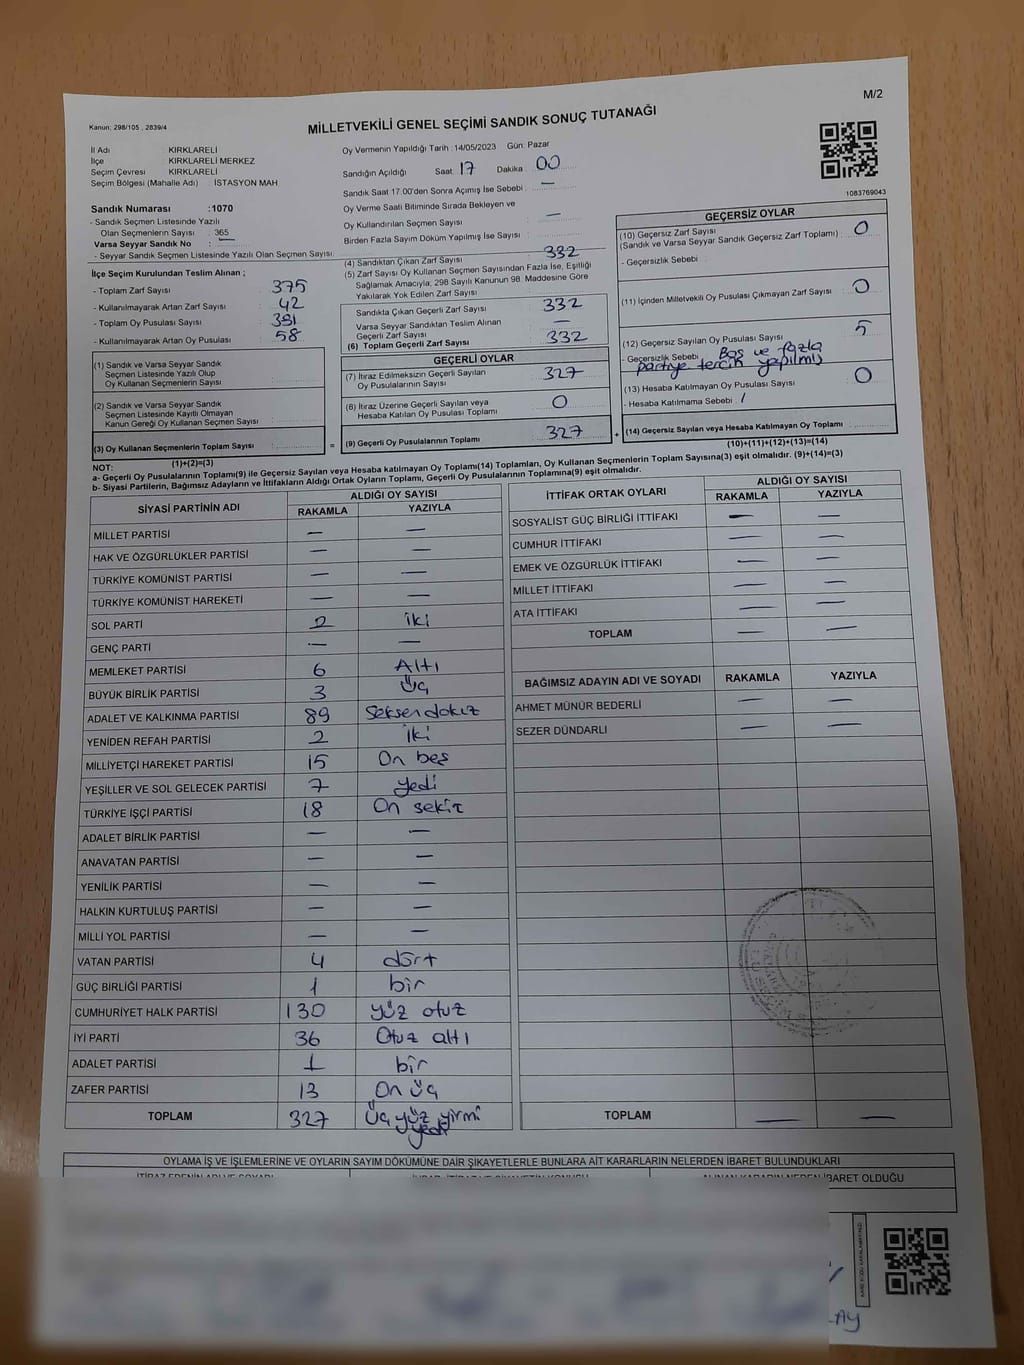 M/2
Kanun: 298/105 , 2839/4
MİLLETVEKİLİ GENEL SEÇİMİ SANDIK SONUÇ TUTANAĞI
İl Adı : KIRKLARELİ
İlçe : KIRKLARELİ MERKEZ
Seçim Çevresi : KIRKLARELİ
Seçim Bölgesi (Mahalle Adı) : İSTASYON MAH
Oy Vermenin Yapıldığı Tarih : 14/05/2023 Gün: Pazar
Sandığın Açıldığı Saat : 17 Dakika : 00
Sandık Saat 17.00'den Sonra Açılmış İse Sebebi : —
Oy Verme Saati Bitiminde Sırada Bekleyen ve
Oy Kullandırılan Seçmen Sayısı : —
Birden Fazla Sayım Döküm Yapılmış İse Sayısı :
1083769043
Sandık Numarası : 1070
- Sandık Seçmen Listesinde Yazılı
Olan Seçmenlerin Sayısı : 365
Varsa Seyyar Sandık No : —
- Seyyar Sandık Seçmen Listesinde Yazılı Olan Seçmen Sayısı:
İlçe Seçim Kurulundan Teslim Alınan ;
- Toplam Zarf Sayısı : 375
- Kullanılmayarak Artan Zarf Sayısı : 42
- Toplam Oy Pusulası Sayısı :
- Kullanılmayarak Artan Oy Pusulası : 58
(1) Sandık ve Varsa Seyyar Sandık
Seçmen Listesinde Yazılı Olup
Oy Kullanan Seçmenlerin Sayısı :
(2) Sandık ve Varsa Seyyar Sandık
Seçmen Listesinde Kayıtlı Olmayan
Kanun Gereği Oy Kullanan Seçmen Sayısı :
(3) Oy Kullanan Seçmenlerin Toplam Sayısı :
(1)+(2)=(3)
(4) Sandıktan Çıkan Zarf Sayısı : 332
(5) Zarf Sayısı Oy Kullanan Seçmen Sayısından Fazla İse, Eşitliği
Sağlamak Amacıyla; 298 Sayılı Kanunun 98. Maddesine Göre
Yakılarak Yok Edilen Zarf Sayısı :
Sandıkta Çıkan Geçerli Zarf Sayısı : 332
Varsa Seyyar Sandıktan Teslim Alınan
Geçerli Zarf Sayısı : —
(6) Toplam Geçerli Zarf Sayısı : 332
GEÇERLİ OYLAR
(7) İtiraz Edilmeksizin Geçerli Sayılan
Oy Pusulalarının Sayısı : 327
(8) İtiraz Üzerine Geçerli Sayılan veya
Hesaba Katılan Oy Pusulası Toplamı : 0
= (9) Geçerli Oy Pusulalarının Toplamı : 327 +
GEÇERSİZ OYLAR
(10) Geçersiz Zarf Sayısı : 0
(Sandık ve Varsa Seyyar Sandık Geçersiz Zarf Toplamı)
- Geçersizlik Sebebi :
(11) İçinden Milletvekili Oy Pusulası Çıkmayan Zarf Sayısı : 0
(12) Geçersiz Sayılan Oy Pusulası Sayısı : 5
- Geçersizlik Sebebi : Boş ve fazla
partiye tercih yapılmış
(13) Hesaba Katılmayan Oy Pusulası Sayısı : 0
- Hesaba Katılmama Sebebi : /
(14) Geçersiz Sayılan veya Hesaba Katılmayan Oy Toplamı :
(10)+(11)+(12)+(13)=(14)
NOT:
a- Geçerli Oy Pusulalarının Toplamı(9) ile Geçersiz Sayılan veya Hesaba katılmayan Oy Toplamı(14) Toplamları, Oy Kullanan Seçmenlerin Toplam Sayısına(3) eşit olmalıdır. (9)+(14)=(3)
b- Siyasi Partilerin, Bağımsız Adayların ve İttifakların Aldığı Ortak Oyların Toplamı, Geçerli Oy Pusulalarının Toplamına(9) eşit olmalıdır.
SİYASİ PARTİNİN ADI ALDIĞI OY SAYISI
RAKAMLA YAZIYLA
MİLLET PARTİSİ — —
HAK VE ÖZGÜRLÜKLER PARTİSİ — —
TÜRKİYE KOMÜNİST PARTİSİ — —
TÜRKİYE KOMÜNİST HAREKETİ — —
SOL PARTİ 2 iki
GENÇ PARTİ — —
MEMLEKET PARTİSİ 6 Altı
BÜYÜK BİRLİK PARTİSİ 3 üç
ADALET VE KALKINMA PARTİSİ 89 Seksendokuz
YENİDEN REFAH PARTİSİ 2 iki
MİLLİYETÇİ HAREKET PARTİSİ 15 On beş
YEŞİLLER VE SOL GELECEK PARTİSİ 7 yedi
TÜRKİYE İŞÇİ PARTİSİ 18 On sekiz
ADALET BİRLİK PARTİSİ — —
ANAVATAN PARTİSİ — —
YENİLİK PARTİSİ — —
HALKIN KURTULUŞ PARTİSİ — —
MİLLİ YOL PARTİSİ — —
VATAN PARTİSİ 4 dört
GÜÇ BİRLİĞİ PARTİSİ 1 bir
CUMHURİYET HALK PARTİSİ 130 yüz otuz
İYİ PARTİ 36 Otuz altı
ADALET PARTİSİ 1 bir
ZAFER PARTİSİ 13 On üç
TOPLAM 327 üç yüz yirmi
yedi
İTTİFAK ORTAK OYLARI ALDIĞI OY SAYISI
RAKAMLA YAZIYLA
SOSYALİST GÜÇ BİRLİĞİ İTTİFAKI — —
CUMHUR İTTİFAKI — —
EMEK VE ÖZGÜRLÜK İTTİFAKI — —
MİLLET İTTİFAKI — —
ATA İTTİFAKI — —
TOPLAM — —
BAĞIMSIZ ADAYIN ADI VE SOYADI RAKAMLA YAZIYLA
AHMET MÜNÜR BEDERLİ — —
SEZER DÜNDARLI — —
TOPLAM — —
OYLAMA İŞ VE İŞLEMLERİNE VE OYLARIN SAYIM DÖKÜMÜNE DAİR ŞİKAYETLERLE BUNLARA AİT KARARLARIN NELERDEN İBARET BULUNDUKLARI
İTİRAZ EDENİN ADI VE SOYADI ALINAN KARARIN NEDEN İBARET OLDUĞU